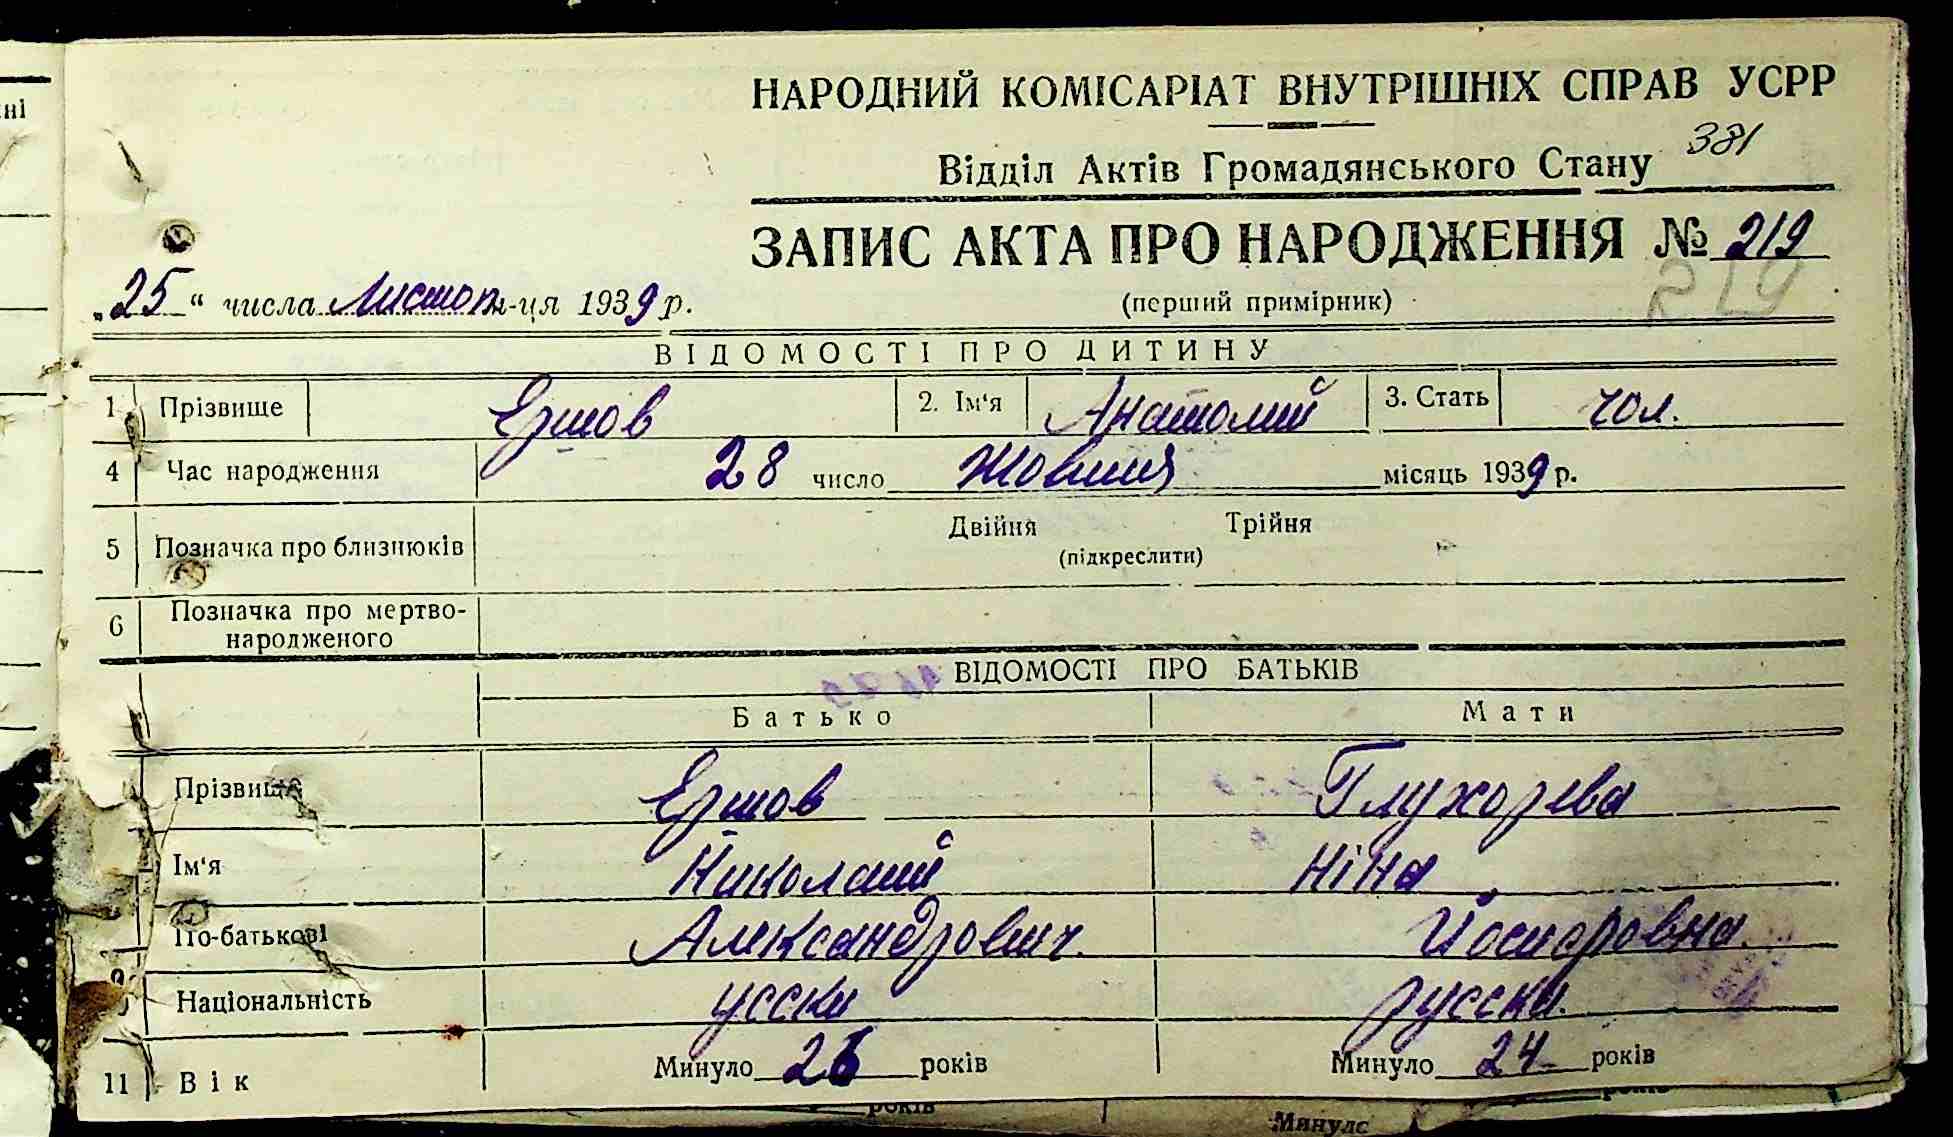 ні
НАРОДНИЙ КОМІСАРІАТ ВНУТРІШНІХ СПРАВ УСРР
381
Відділ Актів Громадянського Стану
ЗАПИС АКТА ПРО НАРОДЖЕННЯ № 219
219
„25“ числа Листоп м-ця 1939 р.
(перший примірник)
ВІДОМОСТІ ПРО ДИТИНУ
1 Прізвище Ершов 2. Ім'я Анатолий 3. Стать чол.
4 Час народження 28 число Жовтня місяць 1939 р.
5 Позначка про близнюків Двійня Трійня
(підкреслити)
6 Позначка про мертво-
народженого
ВІДОМОСТІ ПРО БАТЬКІВ
Батько Мати
Прізвище Ершов Глухорева
Ім'я Николаий Ніна
По-батькові Александрович. Йоспаровна.
Національність усски русски.
11 Вік Минуло 26 років Минуло 24 років
років років
Минуло